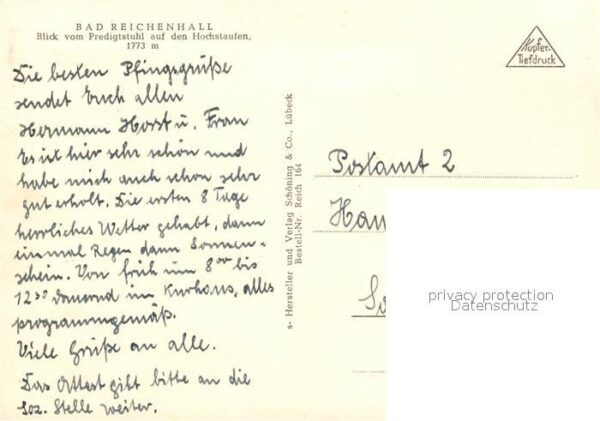 BAD REICHENHALL
Blick vom Predigtstuhl auf den Hochstaufen,
1773 m
Kupfer-
Tiefdruck
Die besten Pfingsgrüße
sendet Euch allen
Hermann Horst u. Frau
Es ist hier sehr schön und
habe mich auch schon sehr
gut erholt. Die ersten 8 Tage
herrliches Wetter gehabt, dann
einmal Regen dann Sonnen-
schein. Von früh um 8⁰⁰ bis
12³⁰ dauernd im Kurhaus, alles
programmgemäß.
Viele Grüße an alle.
Das Attest gibt bitte an die
Soz. Stelle weiter.
s- Hersteller und Verlag Schöning & Co., Lübeck
Bestell-Nr. Reich 164
Postamt 2
privacy protection
Datenschutz